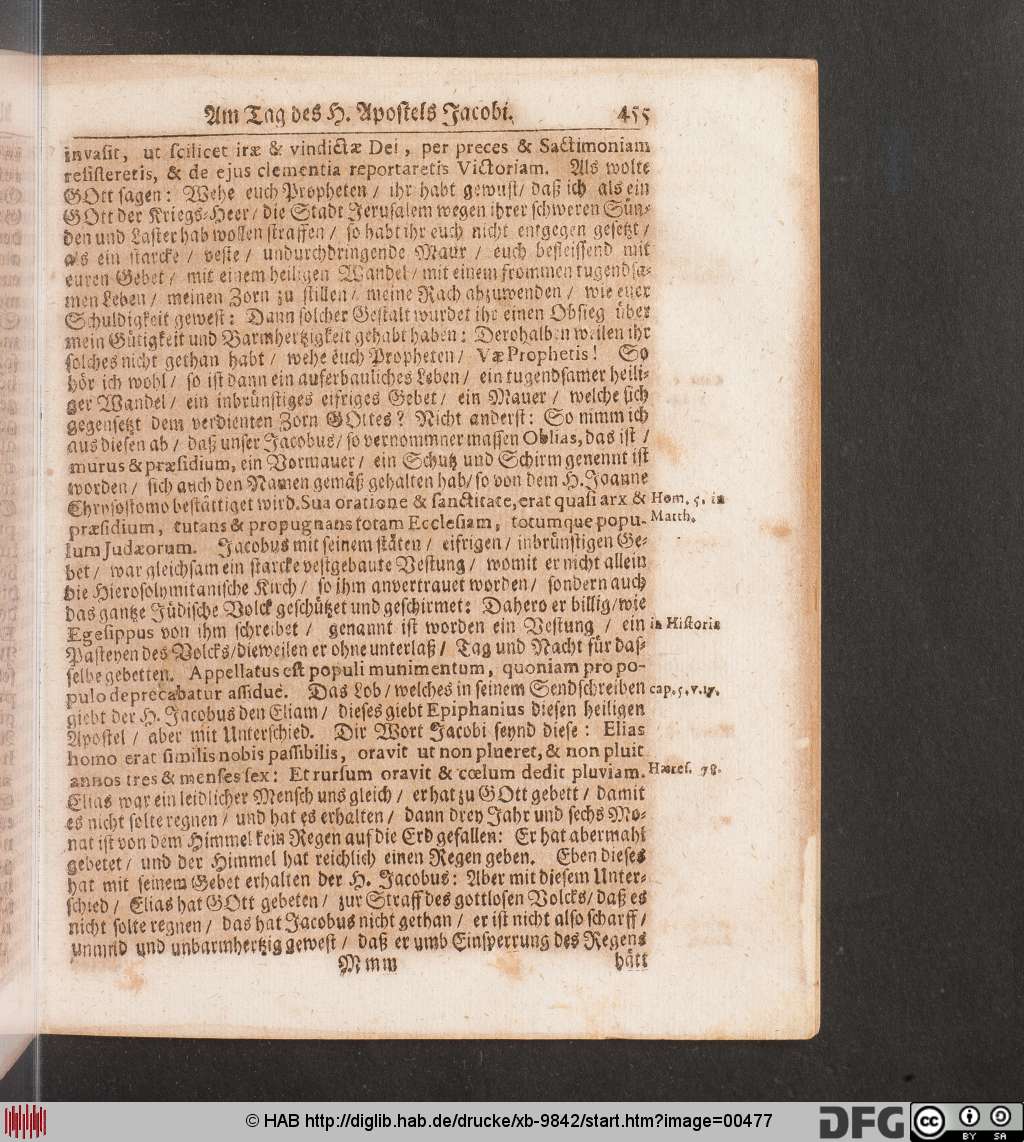 Am Tag des H. Apostels Jacobi. 455
invasit, ut scilicet iræ & vindictæ Dei, per preces & Sactimoniam
resisteretis, & de ejus clementia reportaretis Victoriam. Als wolte
GOtt sagen: Wehe euch Propheten / ihr habt gewust / daß ich als ein
GOtt der Kriegs-Heer / die Stadt Jerusalem wegen ihrer schweren Sün-
den und Laster hab wollen straffen / so habt ihr euch nicht entgegen gesetzt /
als ein starcke / veste / undurchdringende Maur / euch befleissend mit
euren Gebet / mit einem heiligen Wandel / mit einem frommen tugendsa-
men Leben / meinen Zorn zu stillen / meine Rach abzuwenden / wie euer
Schuldigkeit gewest: Dann solcher Gestalt wurdet ihr einen Obsieg über
mein Gütigkeit und Barmhertzigkeit gehabt haben: Derohalben weilen ihr
solches nicht gethan habt / wehe euch Propheten / Væ Prophetis! So
hör ich wohl / so ist dann ein auferbauliches Leben / ein tugendsamer heili-
ger Wandel / ein inbrünstiges eifriges Gebet / ein Mauer / welche sich
gegensetzt dem verdienten Zorn GOttes? Nicht anderst: So nimm ich
aus diesen ab / daß unser Jacobus / so vernommner massen Oblias, das ist /
murus & præsidium, ein Vormauer / ein Schutz und Schirm genennt ist
worden / sich auch den Namen gemäß gehalten hab / so von dem H. Joanne
Chrysostomo bestättiget wird. Sua oratione & sanctitate, erat quasi arx & Hom. 5. in
præsidium, tutans & propugnans totam Ecclesiam, totumque popu- Matth.
lum Judæorum. Jacobus mit seinem stäten / eifrigen / inbrünstigen Ge-
bet / war gleichsam ein starcke vestgebaute Vestung / womit er nicht allein
die Hierosolymitanische Kirch / so ihm anvertrauet worden / sondern auch
das gantze Jüdische Volck geschützet und geschirmet: Dahero er billig / wie
Egesippus von ihm schreibet / genannt ist worden ein Vestung / ein in Historia
Pasteyen des Volcks / dieweilen er ohne unterlaß / Tag und Nacht für das-
selbe gebetten. Appellatus est populi munimentum, quoniam pro po-
pulo deprecabatur assiduè. Das Lob / welches in seinem Sendschreiben cap. 5. v. 17.
giebt der H. Jacobus den Eliam / dieses giebt Epiphanius diesen heiligen
Apostel / aber mit Unterschied. Dir Wort Jacobi seynd diese: Elias
homo erat similis nobis passibilis, oravit ut non plueret, & non pluit
annos tres & menses sex: Et rursum oravit & cœlum dedit pluviam. Hæres. 78.
Elias war ein leidlicher Mensch uns gleich / er hat zu GOtt gebett / damit
es nicht solte regnen / und hat es erhalten / dann drey Jahr und sechs Mo-
nat ist von dem Himmel kein Regen auf die Erd gefallen: Er hat abermahl
gebetet / und der Himmel hat reichlich einen Regen geben. Eben dieses
hat mit seinem Gebet erhalten der H. Jacobus: Aber mit diesem Unter-
schied / Elias hat GOtt gebeten / zur Straff des gottlosen Volcks / daß es
nicht solte regnen / das hat Jacobus nicht gethan / er ist nicht also scharff /
unmild und unbarmhertzig gewest / daß er umb Einsperrung des Regens
Mmm hätt
© HAB http://diglib.hab.de/drucke/xb-9842/start.htm?image=00477 DFG cc BY SA